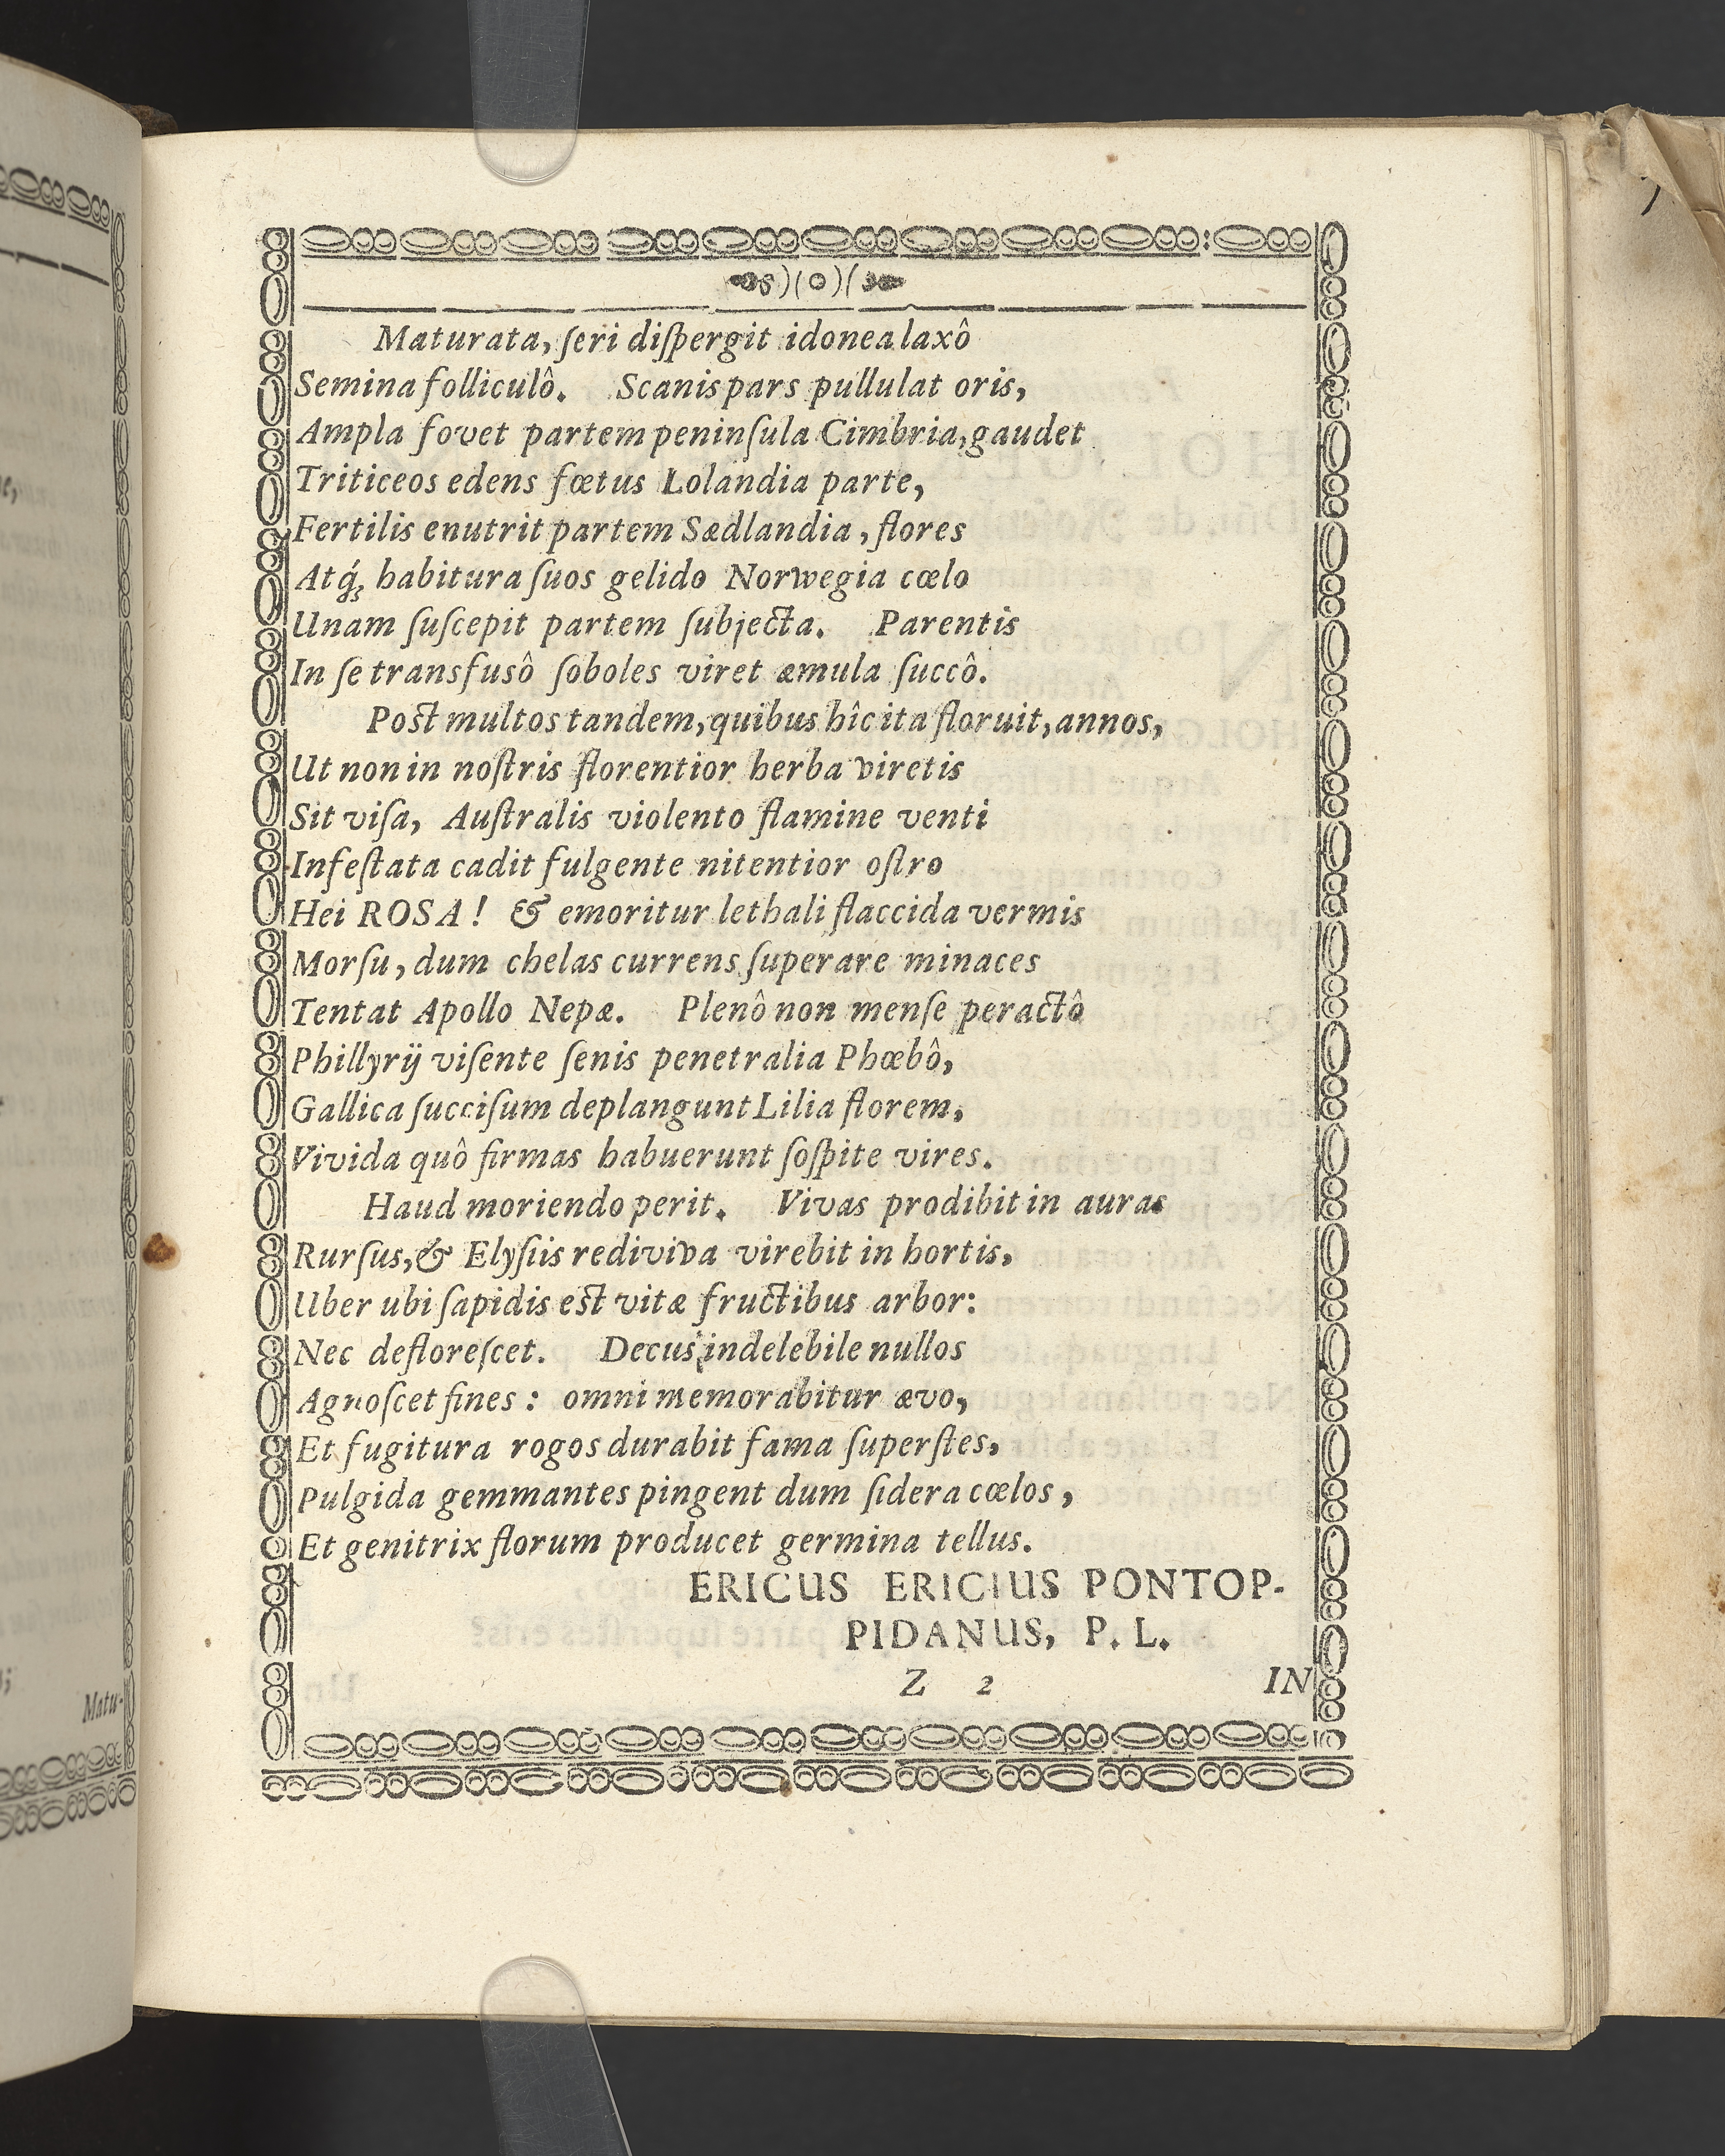 Maturata, ſeri diſpergit idonea laxô
Semina folliculô. Scanis pars pullulat oris,
Ampla fovet partem peninſula Cimbria, gaudet
Triticeos edens fœtus Lolandia parte,
Fertilis enutrit partem Sædlandia, flores
Atq́; habitura ſuos gelido Norwegia cœlo
Unam ſuſcepit partem ſubjecta. Parentis
In ſe transfusô ſoboles viret æmula ſuccô.
Poſt multos tandem, quibus hîc ita floruit, annos,
Ut non in noſtris florentior herba viretis
Sit viſa, Auſtralis violento flamine venti
Infeſtata cadit fulgente nitentior oſtro
Hei ROSA! & emoritur lethali flaccida vermis
Morſu, dum chelas currens ſuperare minaces
Tentat Apollo Nepæ. Plenô non menſe peractô
Phillyrij viſente ſenis penetralia Phœbô,
Gallica ſucciſum deplangunt Lilia florem,
Vivida quô firmas habuerunt ſoſpite vires.
Haud moriendo perit. Vivas prodibit in auras
Rurſus, & Elyſiis rediviva virebit in hortis,
Uber ubi ſapidis eſt vitæ fructibus arbor:
Nec defloreſcet. Decus indelebile nullos
Agnoſcet fines: omni memorabitur ævo,
Et fugitura rogos durabit fama ſuperſtes,
Pulgida gemmantes pingent dum ſidera cœlos,
Et genitrix florum producet germina tellus.
ERICUS ERICIUS PONTOP-
PIDANUS, P. L.
Z 2 IN
Matu-